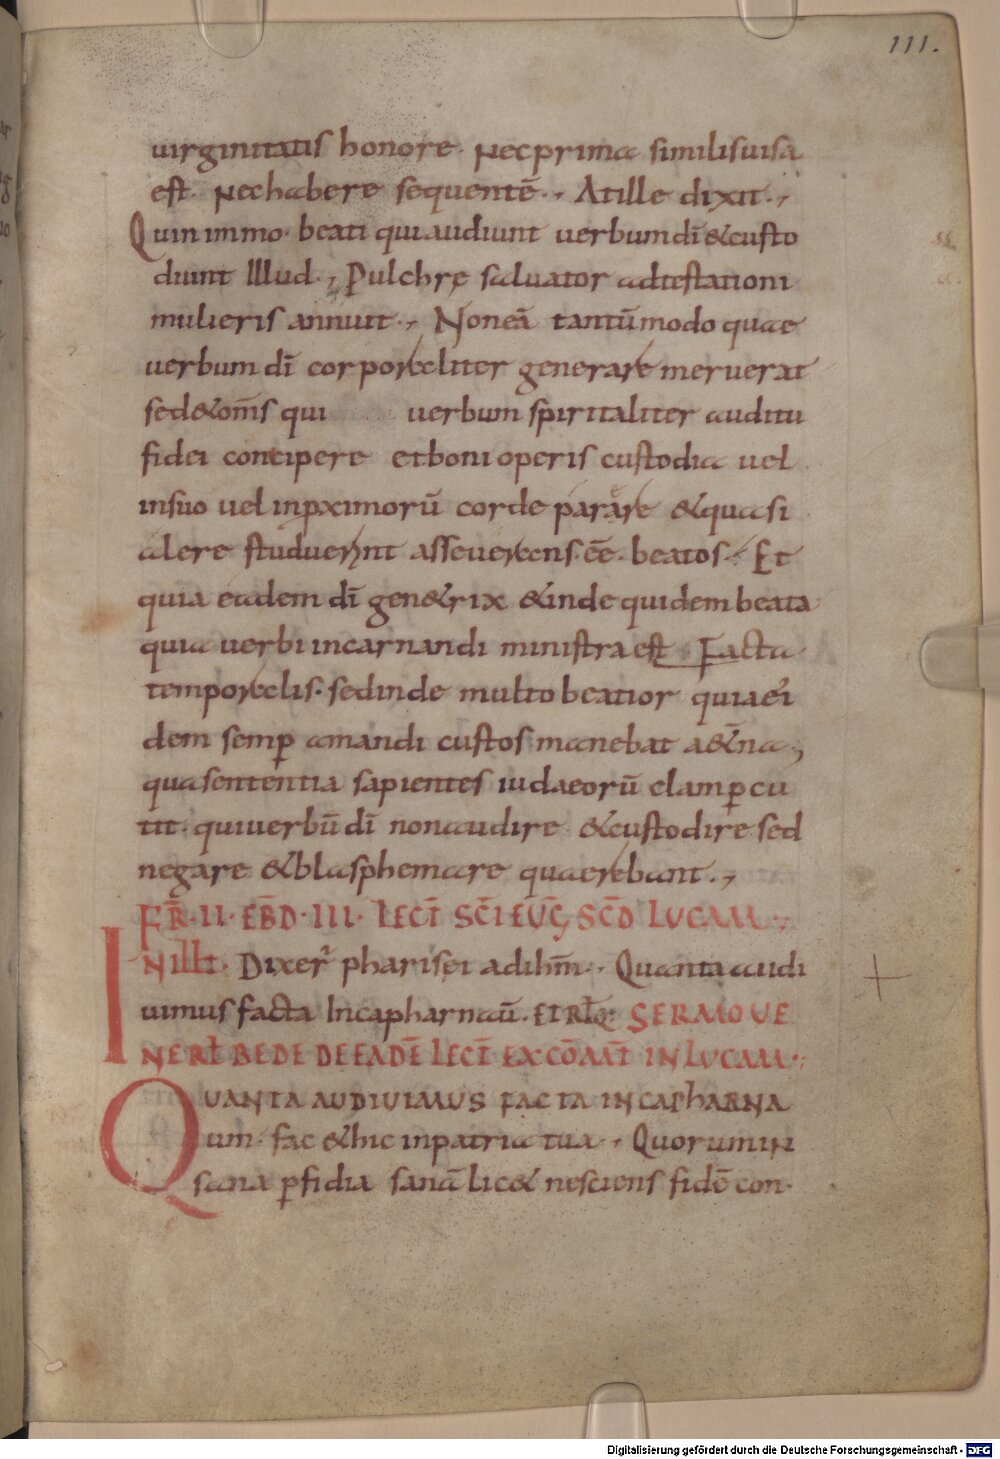 111.
uirginitatis honore. nec prima similis uisa
est. nec habere sequentē., At ille dixit.,
Quin immo. beati qui audiunt uerbum dī & custo
diunt Illud., Pulchrę saluator adtestationi
mulieris annuit., Non eā tantū modo quae
uerbum dī corporaliter generare meruerat
sed & om̄s qui uerbum spiritaliter auditu
fidei concipere et boni operis custodia uel
in suo uel in pximorū corde parare & quasi
alere studuerunt asseuerans. eē. beatos. Et
quia eadem dī gen&rix & inde quidem beata
quia uerbi incarnandi ministra est Facta
temporalis. sed inde multo beatior quia ei
dem semp amandi custos manebat a&̄na,
qua sententia sapientes iudaeorū clam pcu
tit. qui uerbū dī non audire & custodire sed
negare & blasphemare quaerebant.,
FR̄. II. EB̄D. III. LECT̄ SC̄I EUḠ SC̄D LUCAM
IN illt. Dixer̄ pharisei ad ihm̄. Quanta audi
uimus facta In capharnaū. ET RLQ: SERMO UE
NERL BEDE DE EADĒ LECT̄ EX CŌMT̄ IN LUCAM.
QUANTA AUDIUIMUS FACTA IN CAPhARNA
um. fac & hic in patria tua., Quorum in
sana pfidia sanā lic& nesciens fidē con.
Digitalisierung gefördert durch die Deutsche Forschungsgemeinschaft - DFG